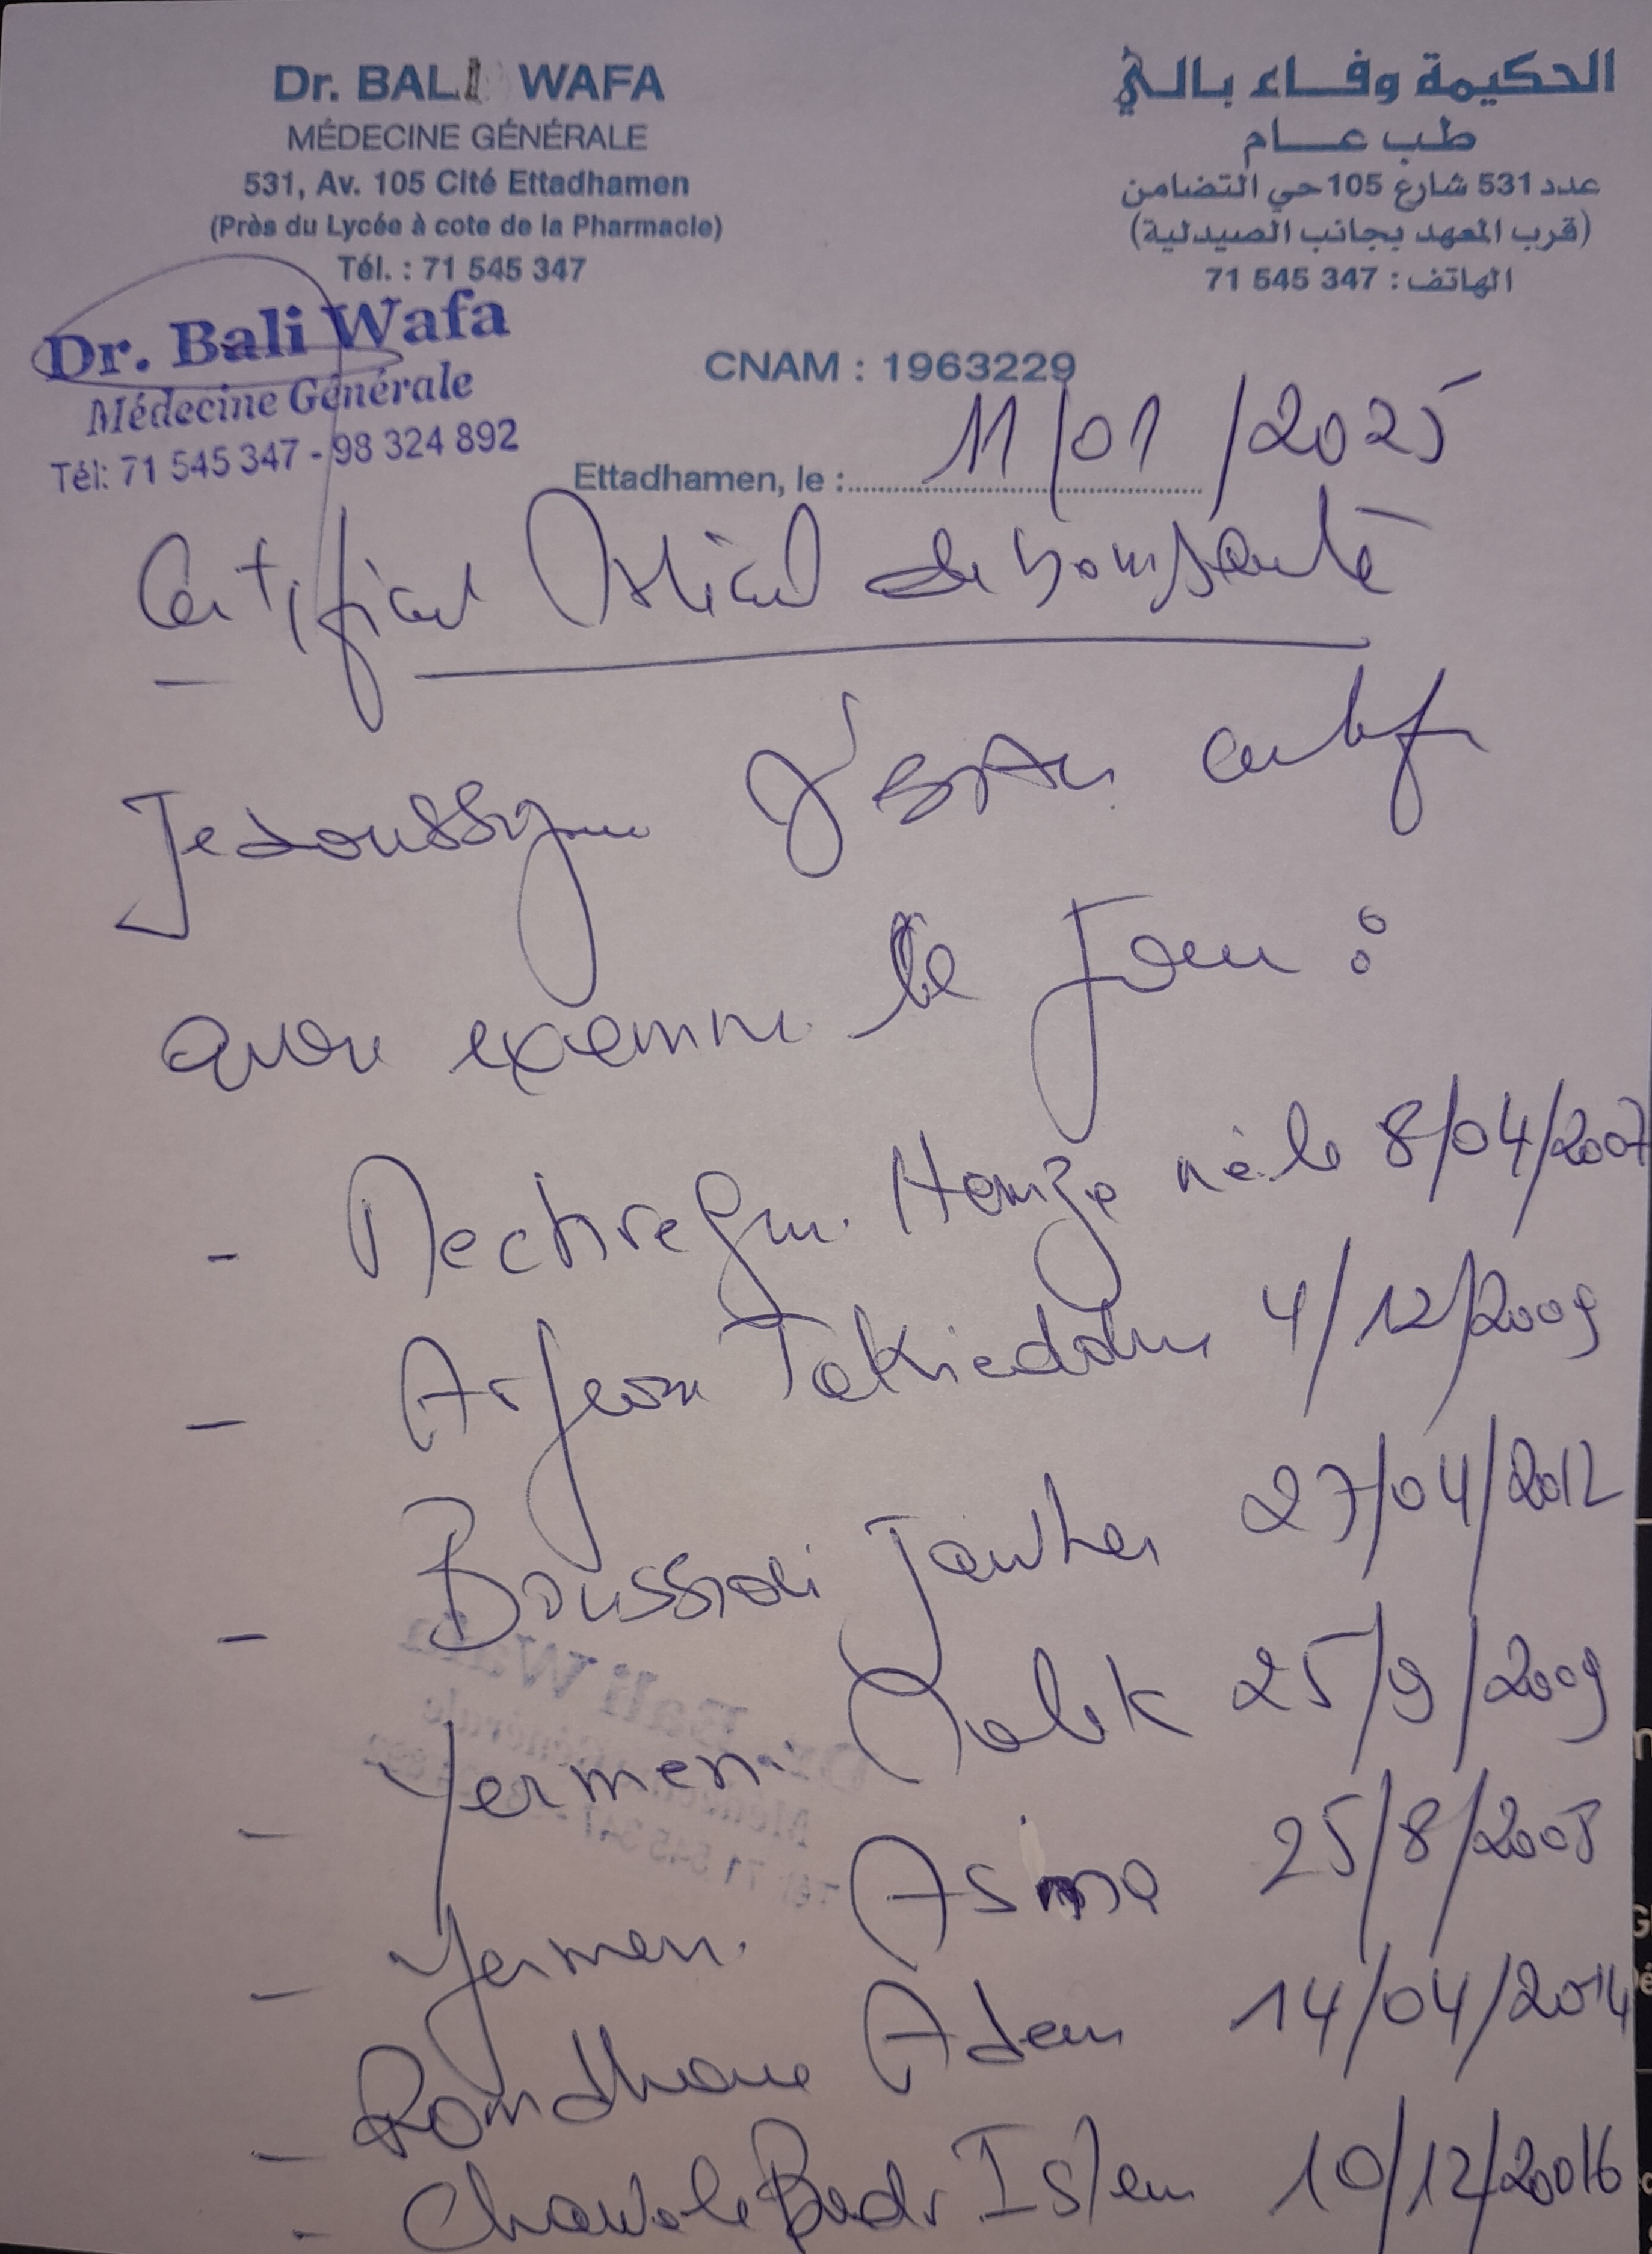 Dr. BALI WAFA
MÉDECINE GÉNÉRALE
531, Av. 105 Cité Ettadhamen
(Près du Lycée à cote de la Pharmacie)
Tél. : 71 545 347
الحكيمة وفاء بالي
طب عام
عدد 531 شارع 105 حي التضامن
(قرب المعهد بجانب الصيدلية)
الهاتف : 347 545 71
Dr. Bali Wafa
Médecine Générale
Tél: 71 545 347 - 98 324 892
CNAM : 1963229
Ettadhamen, le : 11/01/2025
Certificat Médical de bonne santé
Je soussigné
avoir examiné ce jour :
- Hamza né le 8/04/2007
- Takieddine 4/12/2009
- Jawher 27/04/2012
- Yermeni Malek 25/9/2009
- Yermeni 25/8/2008
- Romdhane Adem 14/04/2014
- Badr Islem 10/12/20016